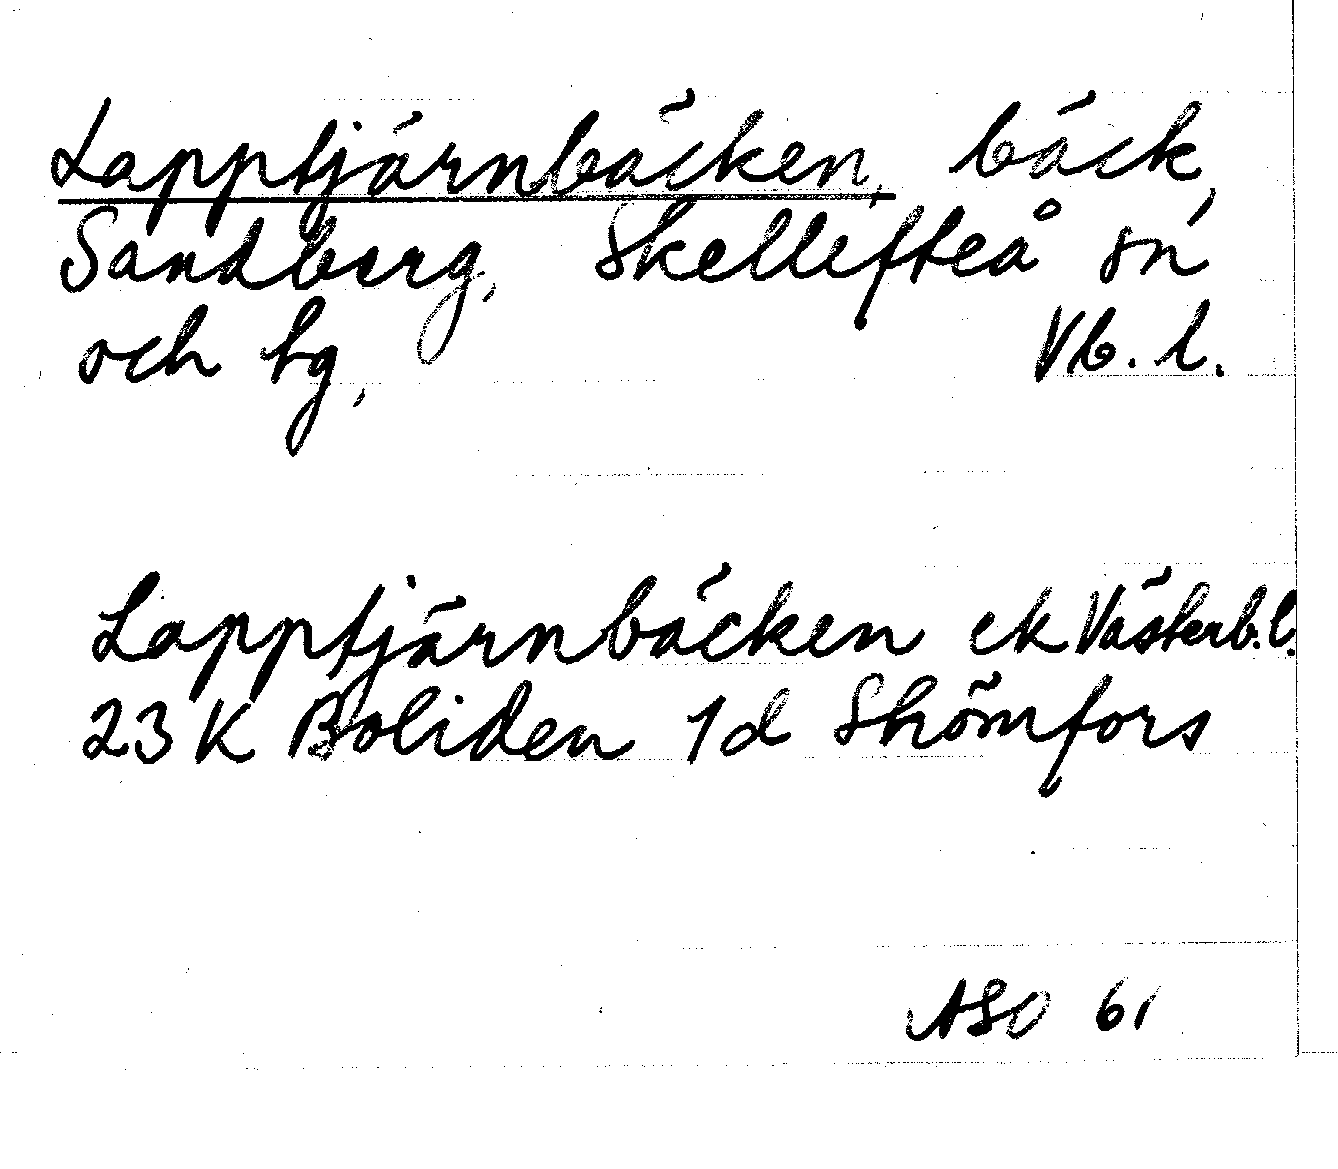 Lapptjärnbäcken, bäck,
Sandberg, Skellefteå sn
och tg, Vb. l.
Lapptjärnbäcken ek Västerb. l.
23 K Boliden 1d Strömfors
ASO 61